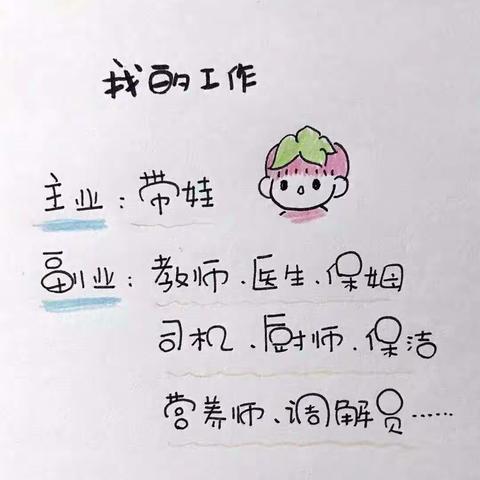 我的工作
主业：带娃
副业：教师、医生、保姆
司机、厨师、保洁
营养师、调解员……